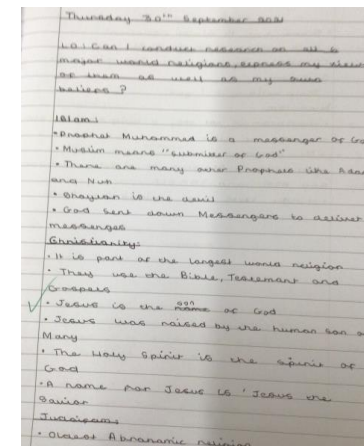 Thursday 30th September 2021
LO: Can I conduct research on all 6
major world religions, express my views
of them as well as my own
beliefs?
Islam:
• Prophet Muhammed is a messenger of Go
• Muslim means "submiter of God"
• There are many other Prophets like Adam
and Nuh
• Shaytan is the devil
• God sent down Messengers to deliver
messenges
Christianity:
• It is part of the longest world religion
• They use the Bible, Testement and
Gospels
• Jesus is the son of God
• Jesus was raised by the human son o
Mary
• The Holy Spirit is the spirit of
God
• A name for Jesus is 'Jesus the
Savior
Judaisam:
• Oldest Abrahamic religion